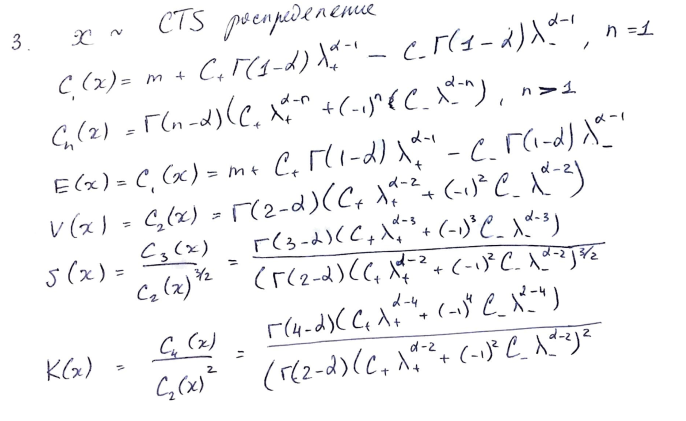 3. x ~ CTS распределение
C₁(x) = m + C₊ Γ(1-α) λ₊^{α-1} - C₋ Γ(1-α) λ₋^{α-1}, n=1
Cₙ(x) = Γ(n-α)(C₊ λ₊^{α-n} + (-1)ⁿ (C₋ λ₋^{α-n}), n>1
E(x) = C₁(x) = m + C₊ Γ(1-α) λ₊^{α-1} - C₋ Γ(1-α) λ₋^{α-1}
V(x) = C₂(x) = Γ(2-α)(C₊ λ₊^{α-2} + (-1)² C₋ λ₋^{α-2})
S(x) = C₃(x) / C₂(x)^{3/2} = Γ(3-α)(C₊ λ₊^{α-3} + (-1)³ C₋ λ₋^{α-3}) / (Γ(2-α)(C₊ λ₊^{α-2} + (-1)² C₋ λ₋^{α-2})^{3/2}
K(x) = C₄(x) / C₂(x)² = Γ(4-α)(C₊ λ₊^{α-4} + (-1)⁴ C₋ λ₋^{α-4}) / (Γ(2-α)(C₊ λ₊^{α-2} + (-1)² C₋ λ₋^{α-2})²